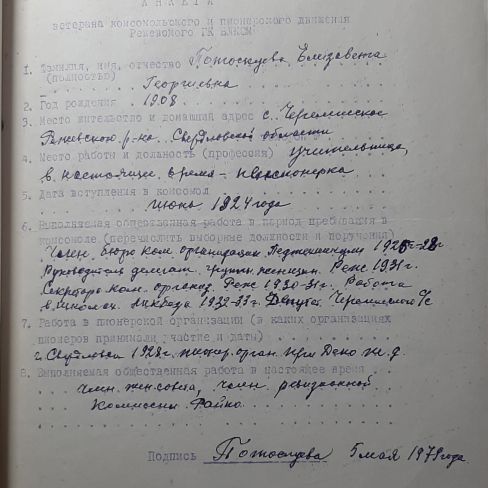 АНКЕТА
ветерана комсомольского и пионерского движения
Режевского ГК ВЛКСМ
1. Фамилия, имя, отчество Потоскуева Елизавета
(полностью) Георгиевна
2. Год рождения 1908
3. Место жительство и домашний адрес с. Черемисское
Режевского р-на Свердловской области
4. Место работы и должность (профессия) учительница,
в настоящее время - пенсионерка
5. Дата вступления в комсомол
июнь 1924 года
6. Выполняемая общественная работа в период пребывания в
комсомоле (перечислить выборные должности и поручения)
Член бюро ком. организации Педтехникум 1926-28г
Руководитель делегат. группы Реж 1931г.
Секретарь ком. организ. Реж 1930-31г. Работа
в 1932-33г. Депутат Черемисского с/с
7. Работа в пионерской организации (в каких организациях
пионеров принимали участие и даты)
г. Свердловск 1928г. пионер. орган. при Депо ж.д.
8. Выполняемая общественная работа в настоящее время
член женсовета, член ревизионной
комиссии Райпо
Подпись Потоскуева 5 мая 1979 года